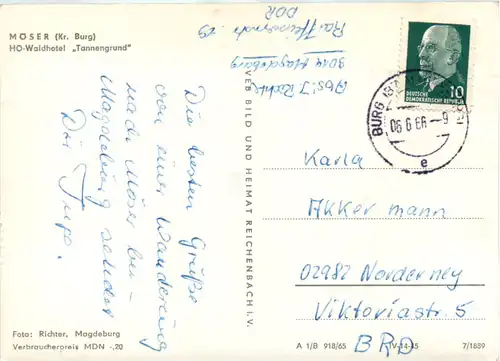 MÖSER (Kr. Burg)
HO-Waldhotel „Tannengrund"
Die besten Grüße
von einer Wanderung
nach Möser bei
Magdeburg sendet
Dir
Foto: Richter, Magdeburg
Verbraucherpreis MDN -,20
Abs:
3014 Magdeburg
DDR
VEB BILD UND HEIMAT REICHENBACH I. V.
10
DEUTSCHE
DEMOKRATISCHE REPUBLIK
BURG
06.6.66 - 9
e
Karla
Akkermann
02982 Norderney
Viktoriastr. 5
BRD
A 1/B 918/65 IV-14-45 7/1839